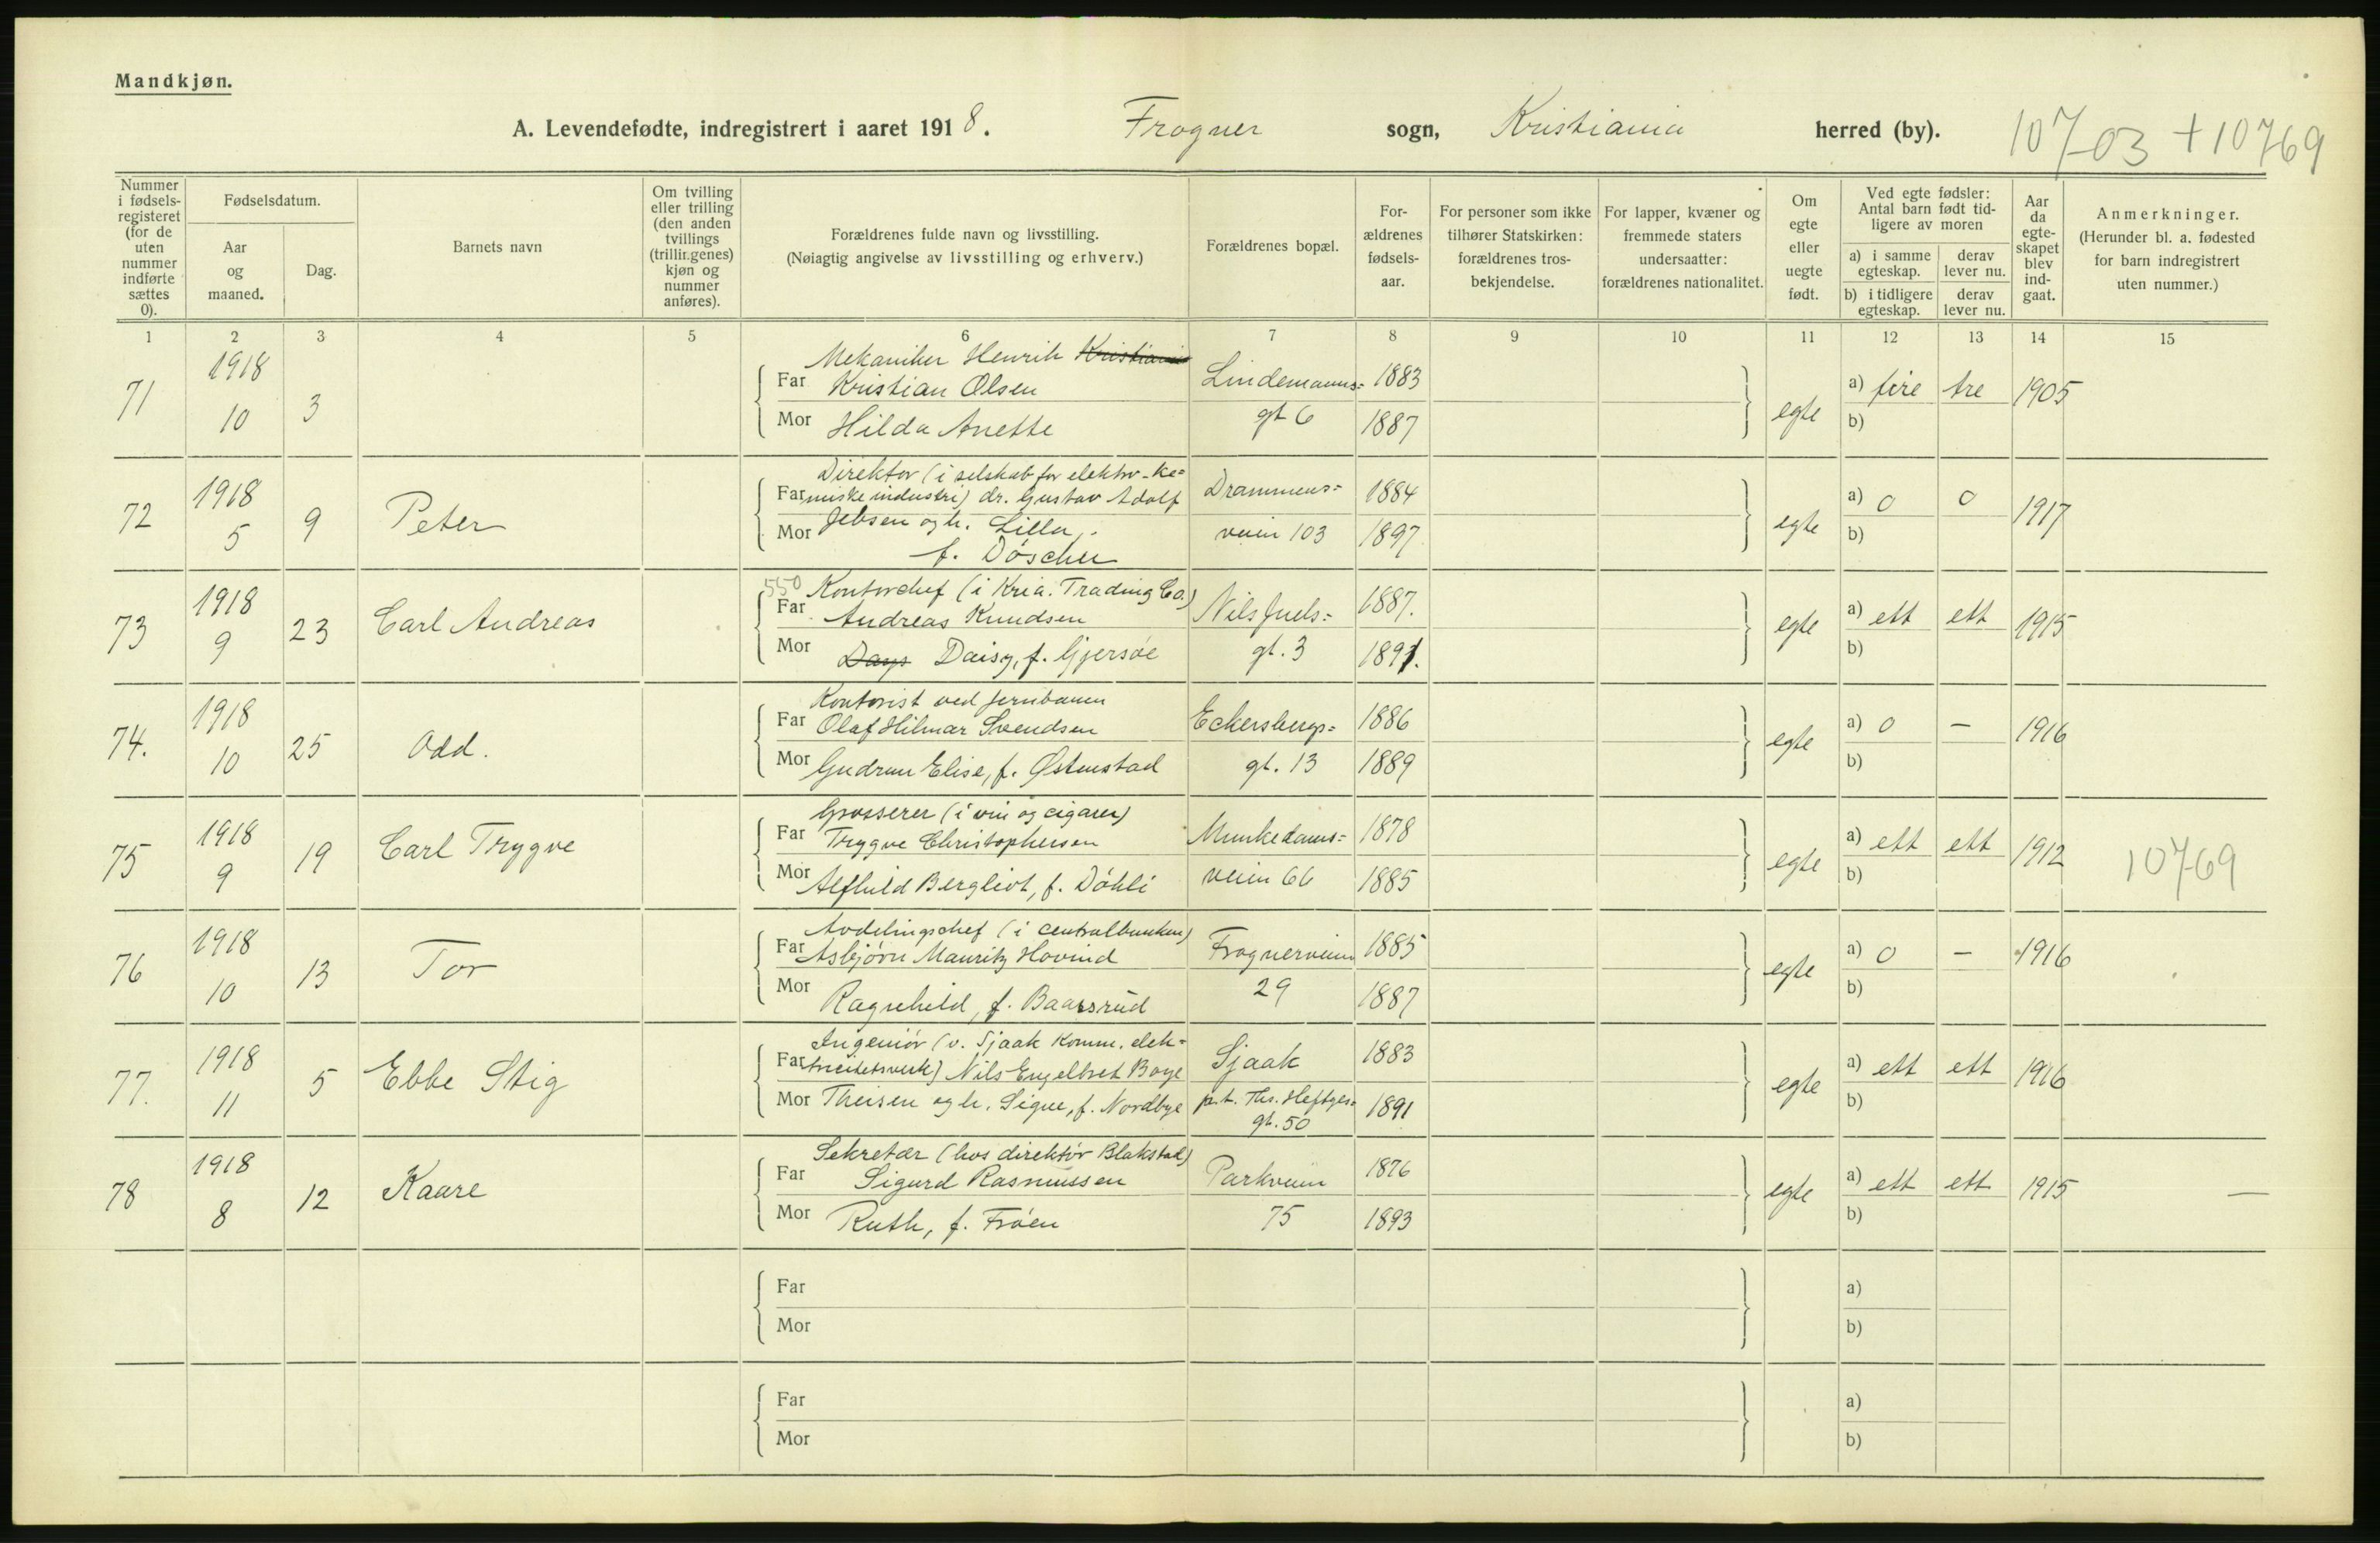 Mandkjøn.
A. Levendefødte, indregistrert i aaret 1918. Frogner sogn, Kristiania herred (by). 10703 + 10769
Nummer i fødsels-registeret (for de uten nummer indførte sættes 0).
Fødselsdatum.
Aar og maaned.
Dag.
Barnets navn
Om tvilling eller trilling (den anden tvillings (trillingenes) kjøn og nummer anføres).
Forældrenes fulde navn og livsstilling.
(Nøiagtig angivelse av livsstilling og erhverv.)
Forældrenes bopæl.
For-ældrenes fødsels-aar.
For personer som ikke tilhører Statskirken: forældrenes tros-bekjendelse.
For lapper, kvæner og fremmede staters undersaatter: forældrenes nationalitet.
Om egte eller uegte født.
Ved egte fødsler: Antal barn født tid-ligere av moren
a) i samme egteskap.
derav lever nu.
b) i tidligere egteskap.
derav lever nu.
Aar da egte-skapet blev ind-gaat.
Anmerkninger.
(Herunder bl. a. fødested for barn indregistrert uten nummer.)
1 2 3 4 5 6 7 8 9 10 11 12 13 14 15
71 1918 10 3
Mekaniker Henrik Kristian
Far Kristian Olsen
Mor Hilda Anette
Lindemanns=
gt 6
1883
1887
egte a) fire tre 1905
b)
72 1918 5 9 Peter
Direktør (i selskab for elektro-ke=
Far miske industri) dr. Gustav Adolf
Mor Jebsen og h. Lilla,
f. Döscher
Drammens=
veien 103
1884
1897
egte a) 0 0 1917
b)
73 1918 9 23 Carl Andreas
550 Kontorchef (i Kria. Trading Co.)
Far Andreas Knudsen
Mor Days Daisy, f. Gjersøe
Nils Juels=
gt. 3
1887.
1891.
egte a) ett ett 1915
b)
74. 1918 10 25 Odd.
Kontorist ved jernbanen
Far Olaf Hilmar Svendsen
Mor Gudrun Elise, f. Østenstad
Eckersbergs=
gt. 13
1886
1889
egte a) 0 — 1916
b)
75 1918 9 19 Carl Trygve
Grosserer (i vin og cigarer)
Far Trygve Christophersen
Mor Alfhild Bergliot, f. Döhli
Munkedams=
veien 66
1878
1885
egte a) ett ett 1912 10769
b)
76 1918 10 13 Tor
Avdelingschef (i centralbanken)
Far Asbjørn Mauritz Hovind
Mor Ragnhild, f. Baarsrud
Frognerveien
29
1885
1887
egte a) 0 — 1916
b)
77. 1918 11 5 Ebbe Stig
Ingeniør (v. Sjaak komm. elek=
Far tricitetsverk) Nils Engelbret Boye
Mor Theisen og h. Signe, f. Nordbye
Sjaak
p.t. Ths. Heftyes=
gt. 50
1883
1891
egte a) ett ett 1916
b)
78 1918 8 12 Kaare
Sekretær (hos direktør Blakstad)
Far Sigurd Rasmussen
Mor Ruth, f. Frøen
Parkveien
75
1876
1893
egte a) ett ett 1915 —
b)
Far a)
Mor b)
Far a)
Mor b)